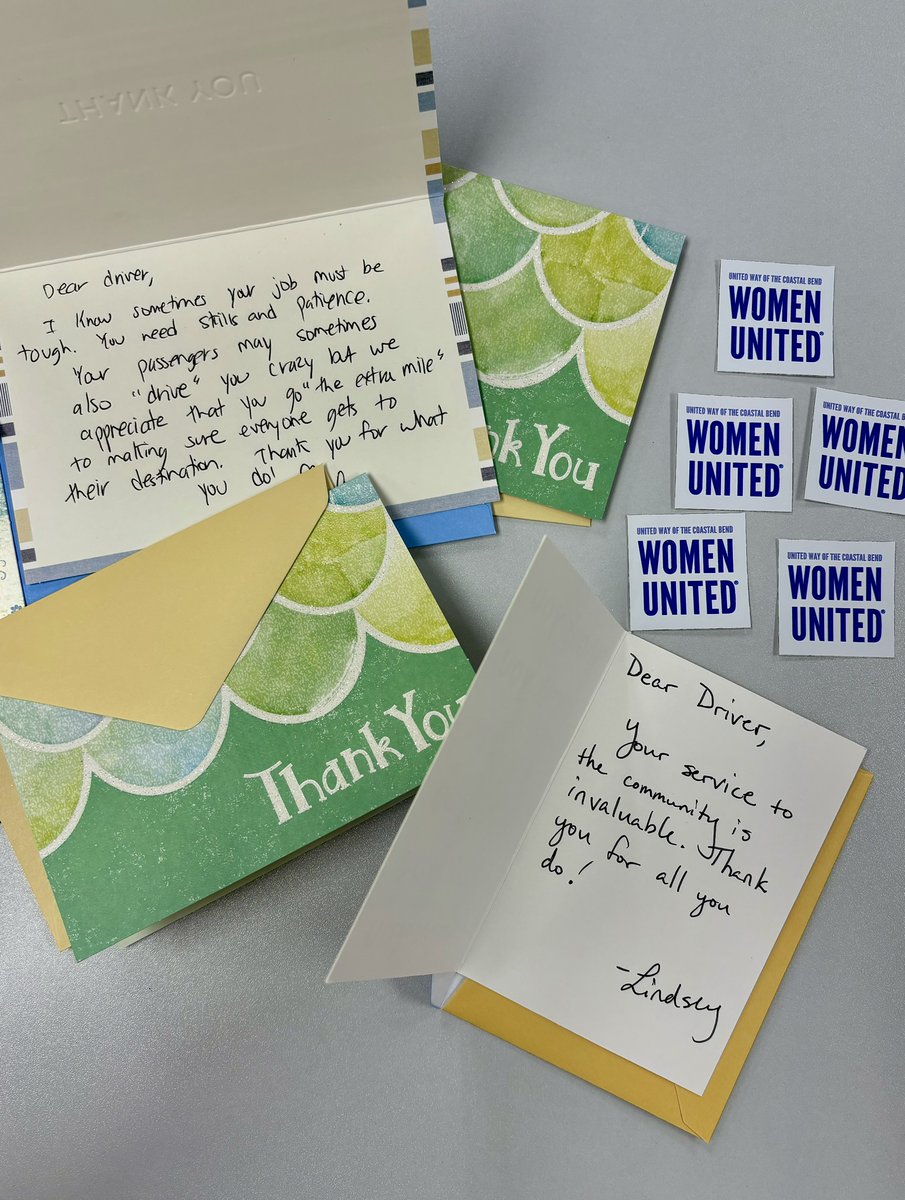 THANK YOU
Dear driver,
I know sometimes your job must be
tough. You need skills and patience.
Your passengers may sometimes
also "drive" you crazy but we
appreciate that you go "the extra mile"
to making sure everyone gets to
their destination. Thank you for what
you do!
nk You
Thank You
Dear Driver,
Your service to
the community is
invaluable. Thank
you for all you
do!
-Lindsey
UNITED WAY OF THE COASTAL BEND
WOMEN
UNITED®
UNITED WAY OF THE COASTAL BEND
WOMEN
UNITED®
UNITED WAY OF THE COASTAL
WOMEN
UNITED
UNITED WAY OF THE COASTAL BEND
WOMEN
UNITED®
UNITED WAY OF THE COASTAL BEND
WOMEN
UNITED®